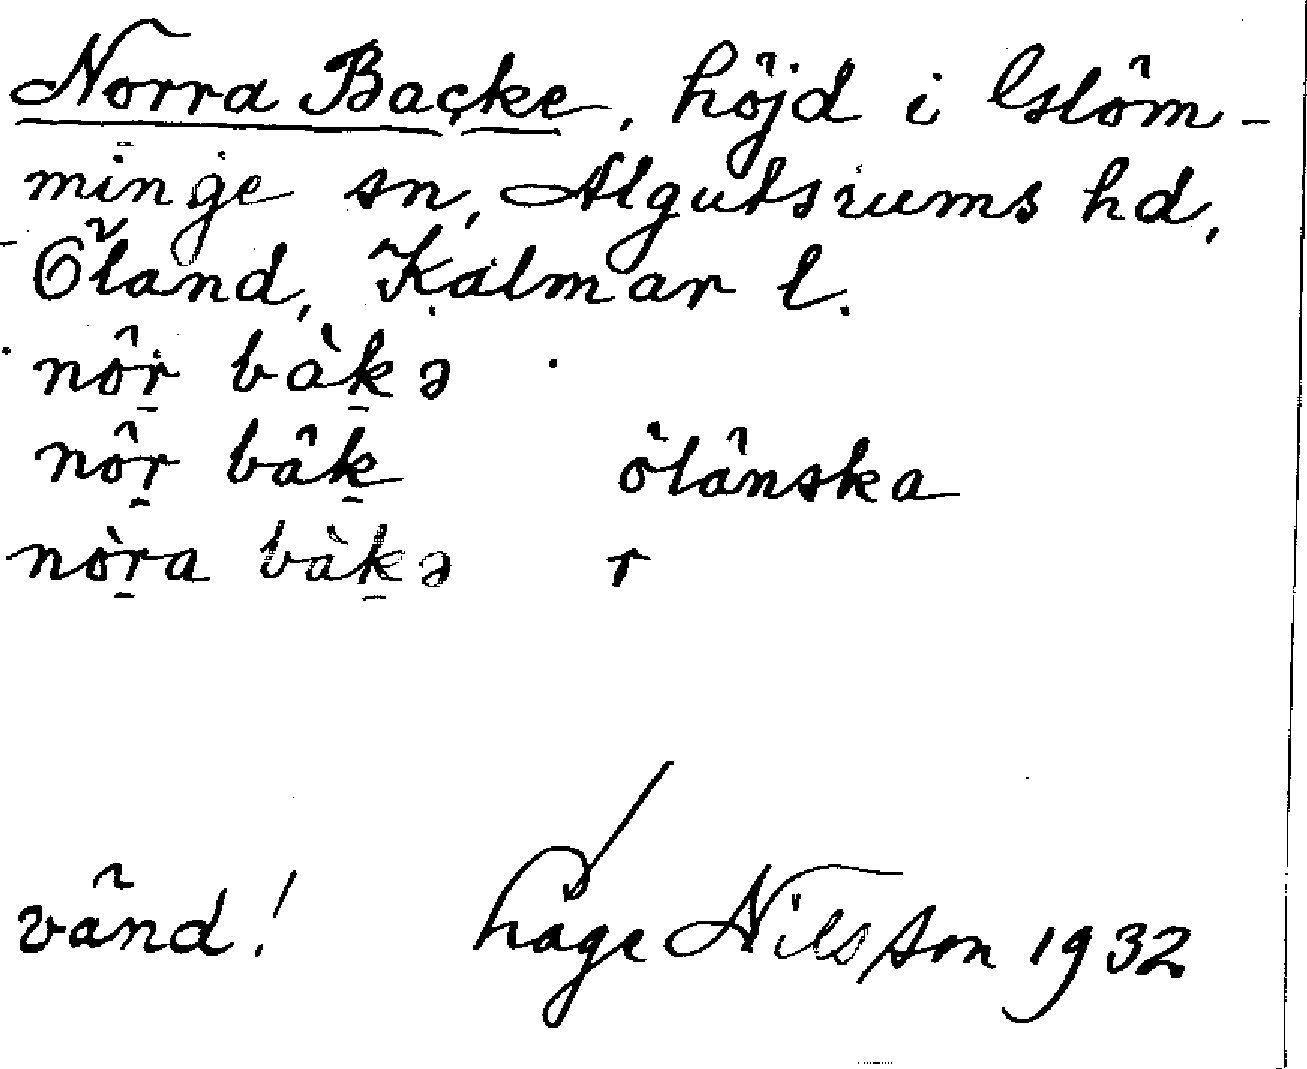 Norra Backe, höjd i Glöm-
minge sn, Algutsrums hd,
Öland, Kalmar l.
nôr̠ bàk̠ə
nôr̠ bâk̠ ölänska
nòr̠a bàk̠ə r
vänd! Håge Nilsson 1932